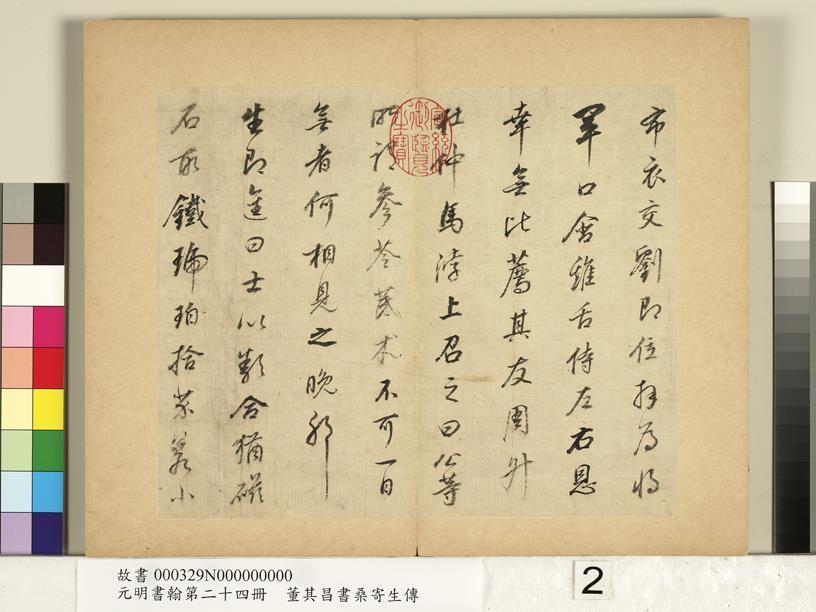 布衣交劉即位拜為將
軍口含雞舌侍左右恩
幸無比薦其友周升
杜仲馬浡上召之曰公等
所謂參苓芪朮不可一日
無者何相見之晚耶
生即進曰士以類合猶磁
石取鐵琥珀拾芥若小
故書 000329N000000000
元明書翰第二十四冊　董其昌書桑寄生傳
2